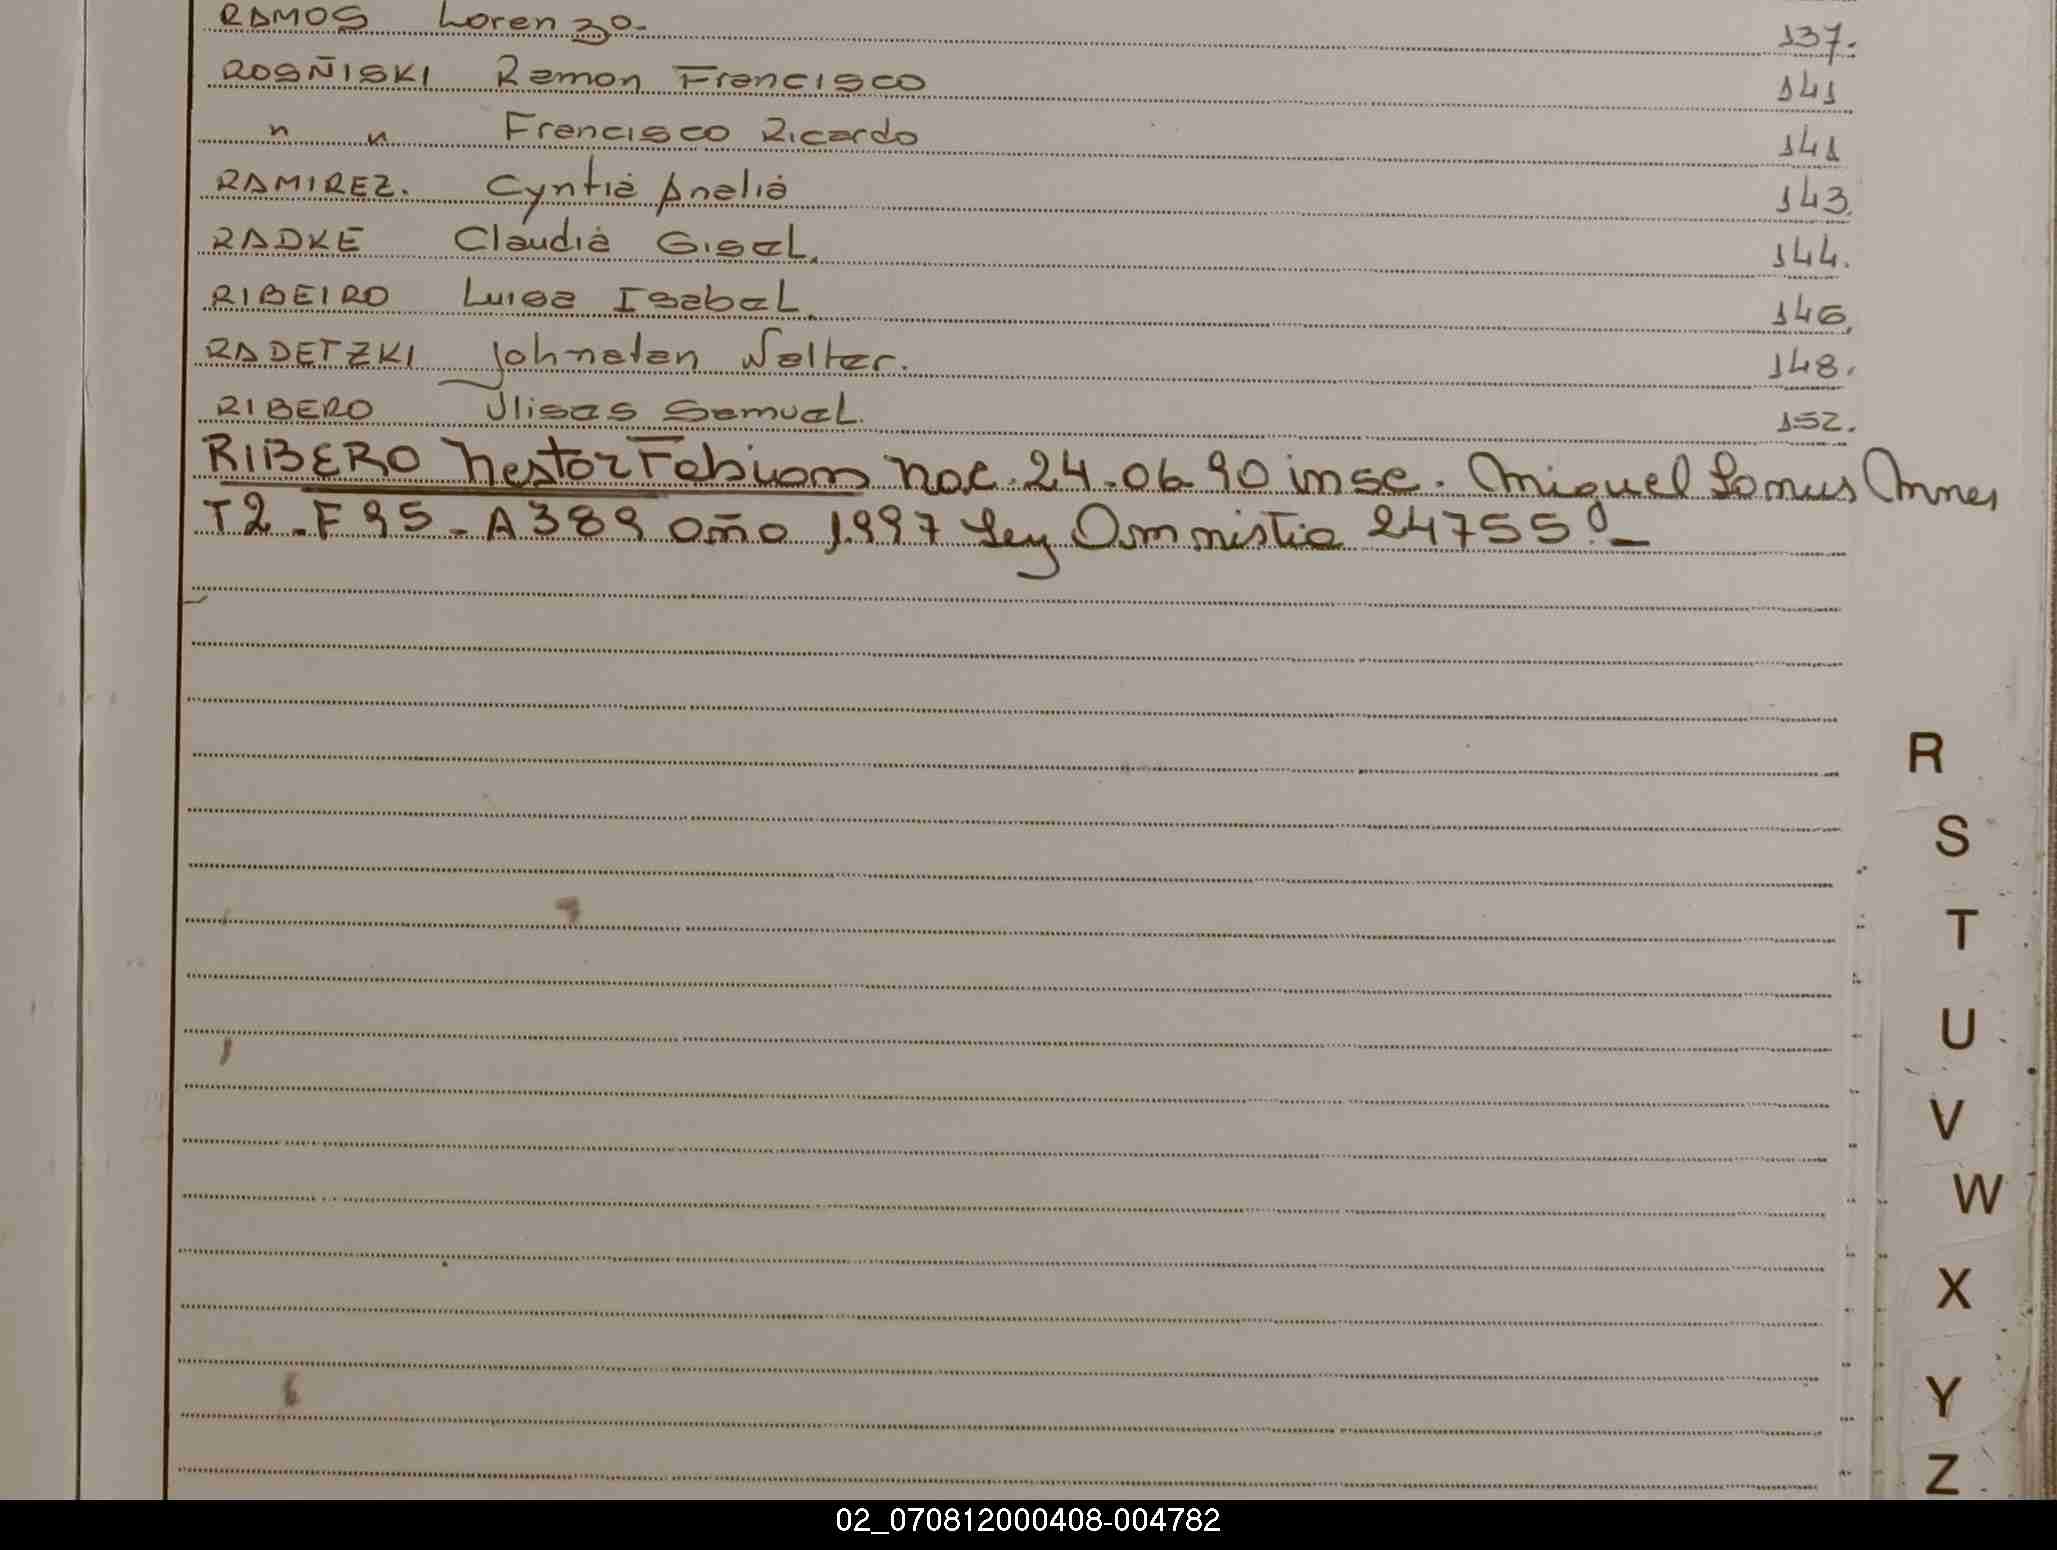 RAMOS Lorenzo. 137.
ROSÑISKI Ramon Francisco 141
" " Francisco Ricardo 141
RAMIREZ. Cyntia Analia 143.
RADKE Claudia Gisel. 144.
RIBEIRO Luisa Isabel. 146.
RADETZKI Johnatan Walter. 148.
RIBERO Ulises Samuel. 152.
RIBERO Nestor Fabian Nac. 24.06.90 insc. Miguel
T2-F95-A389 año 1997 Ley Amnistia 24755
R
S
T
U
V
W
X
Y
Z
02_070812000408-004782